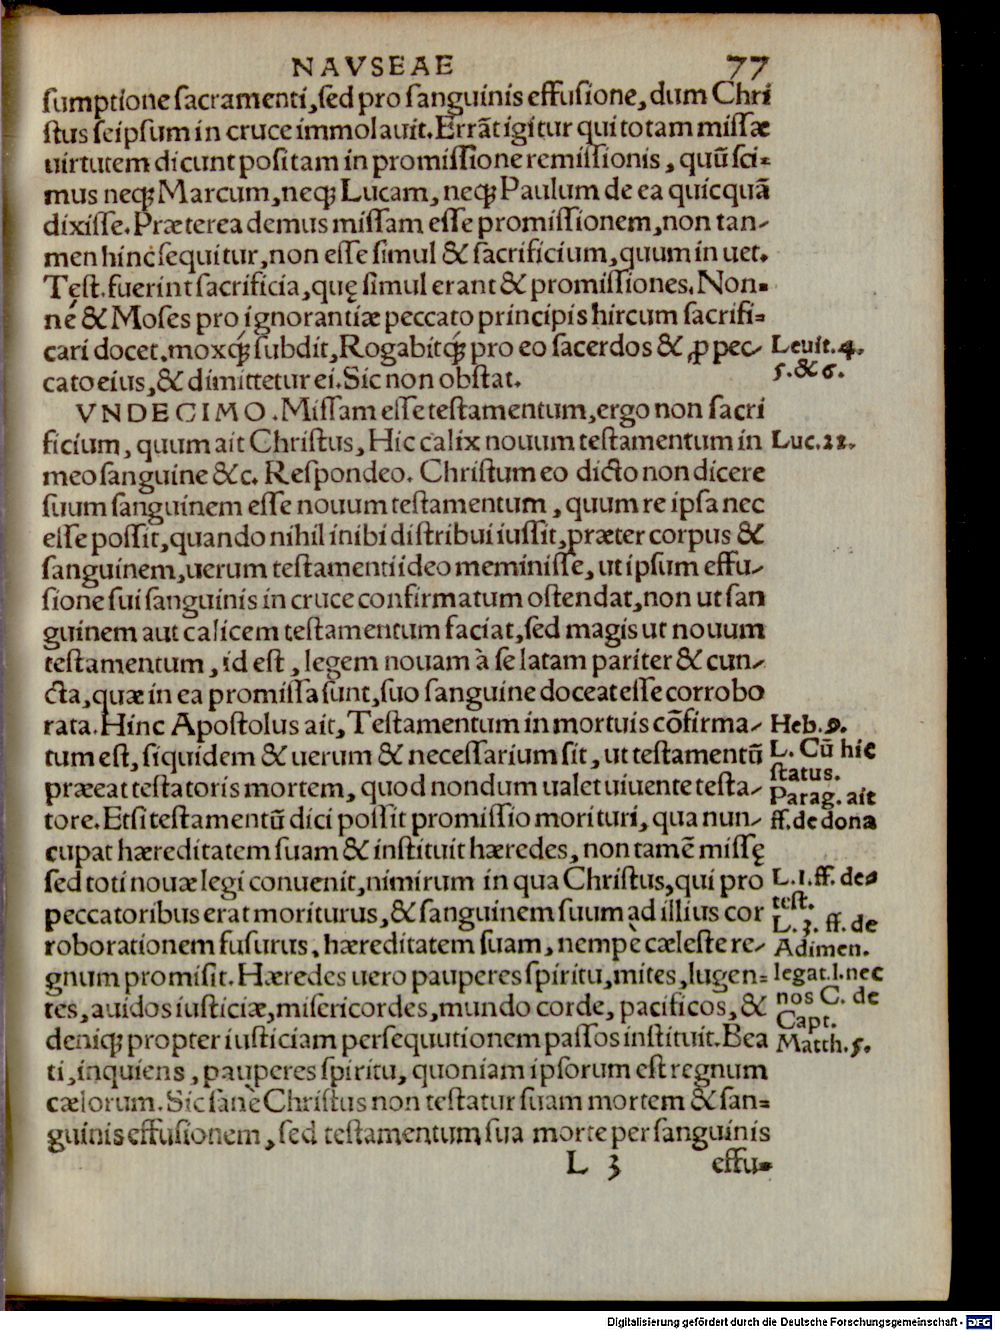 NAVSEAE 77
sumptione sacramenti, sed pro sanguinis effusione, dum Chri
stus seipsum in cruce immolauit. Errãt igitur qui totam missæ
uirtutem dicunt positam in promissione remissionis, quũ sci-
mus neq; Marcum, neq; Lucam, neq; Paulum de ea quicquã
dixisse. Præterea demus missam esse promissionem, non tan-
men hinc sequitur, non esse simul & sacrificium, quum in uet.
Test. fuerint sacrificia, quę simul erant & promissiones. Non-
ne & Moses pro ignorantiæ peccato principis hircum sacrifi-
cari docet. moxq́; subdit, Rogabitq́; pro eo sacerdos & ꝓ pec-
cato eius, & dimittetur ei. Sic non obstat.
Leuit. 4.
5. & 6.
VNDECIMO. Missam esse testamentum, ergo non sacri
ficium, quum ait Christus, Hic calix nouum testamentum in
Luc. 22.
meo sanguine &c. Respondeo. Christum eo dicto non dicere
suum sanguinem esse nouum testamentum, quum re ipsa nec
esse possit, quando nihil inibi distribui iussit, præter corpus &
sanguinem, uerum testamenti ideo meminisse, ut ipsum effu-
sione sui sanguinis in cruce confirmatum ostendat, non ut san
guinem aut calicem testamentum faciat, sed magis ut nouum
testamentum, id est, legem nouam à se latam pariter & cun-
cta, quæ in ea promissa sunt, suo sanguine doceat esse corrobo
rata. Hinc Apostolus ait, Testamentum in mortuis cõfirma-
tum est, siquidem & uerum & necessarium sit, ut testamentũ
præeat testatoris mortem, quod nondum ualet uiuente testa-
tore. Etsi testamentũ dici possit promissio morituri, qua nun-
cupat hæreditatem suam & instituit hæredes, non tamẽ missę
sed toti nouæ legi conuenit, nimirum in qua Christus, qui pro
peccatoribus erat moriturus, & sanguinem suum ad illius cor
roborationem fusurus, hæreditatem suam, nempè cæleste re-
gnum promisit. Hæredes uero pauperes spiritu, mites, lugen-
tes, auidos iusticiæ, misericordes, mundo corde, pacificos, &
deniq; propter iusticiam persequutionem passos instituit. Bea
ti, inquiens, pauperes spiritu, quoniam ipsorum est regnum
cælorum. Sic sanè Christus non testatur suam mortem & san-
guinis effusionem, sed testamentum sua morte per sanguinis
Heb. 9.
L. Cũ hic
status.
Parag. ait
ff. de dona
L. 1. ff. de
test.
L. 3. ff. de
Adimen.
legat. l. nec
nos C. de
Capt.
Matth. 5.
L 3 effu-
Digitalisierung gefördert durch die Deutsche Forschungsgemeinschaft - DFG